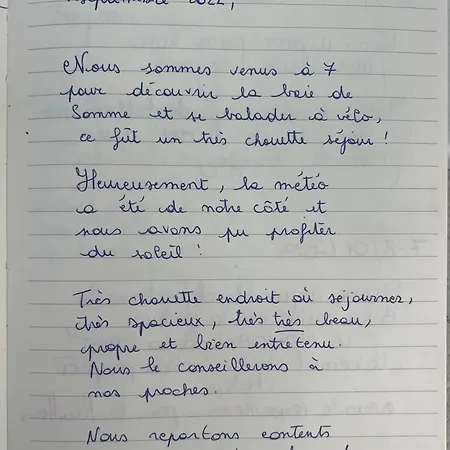 septembre 2022,
Nous sommes venus à 7
pour découvrir la baie de
Somme et se balader à vélo,
ce fût un très chouette séjour !
Heureusement, la météo
a été de notre côté et
nous avons pu profiter
du soleil !
Très chouette endroit où séjourner,
très spacieux, très très beau,
propre et bien entretenu.
Nous le conseillerons à
nos proches.
Nous repartons contents